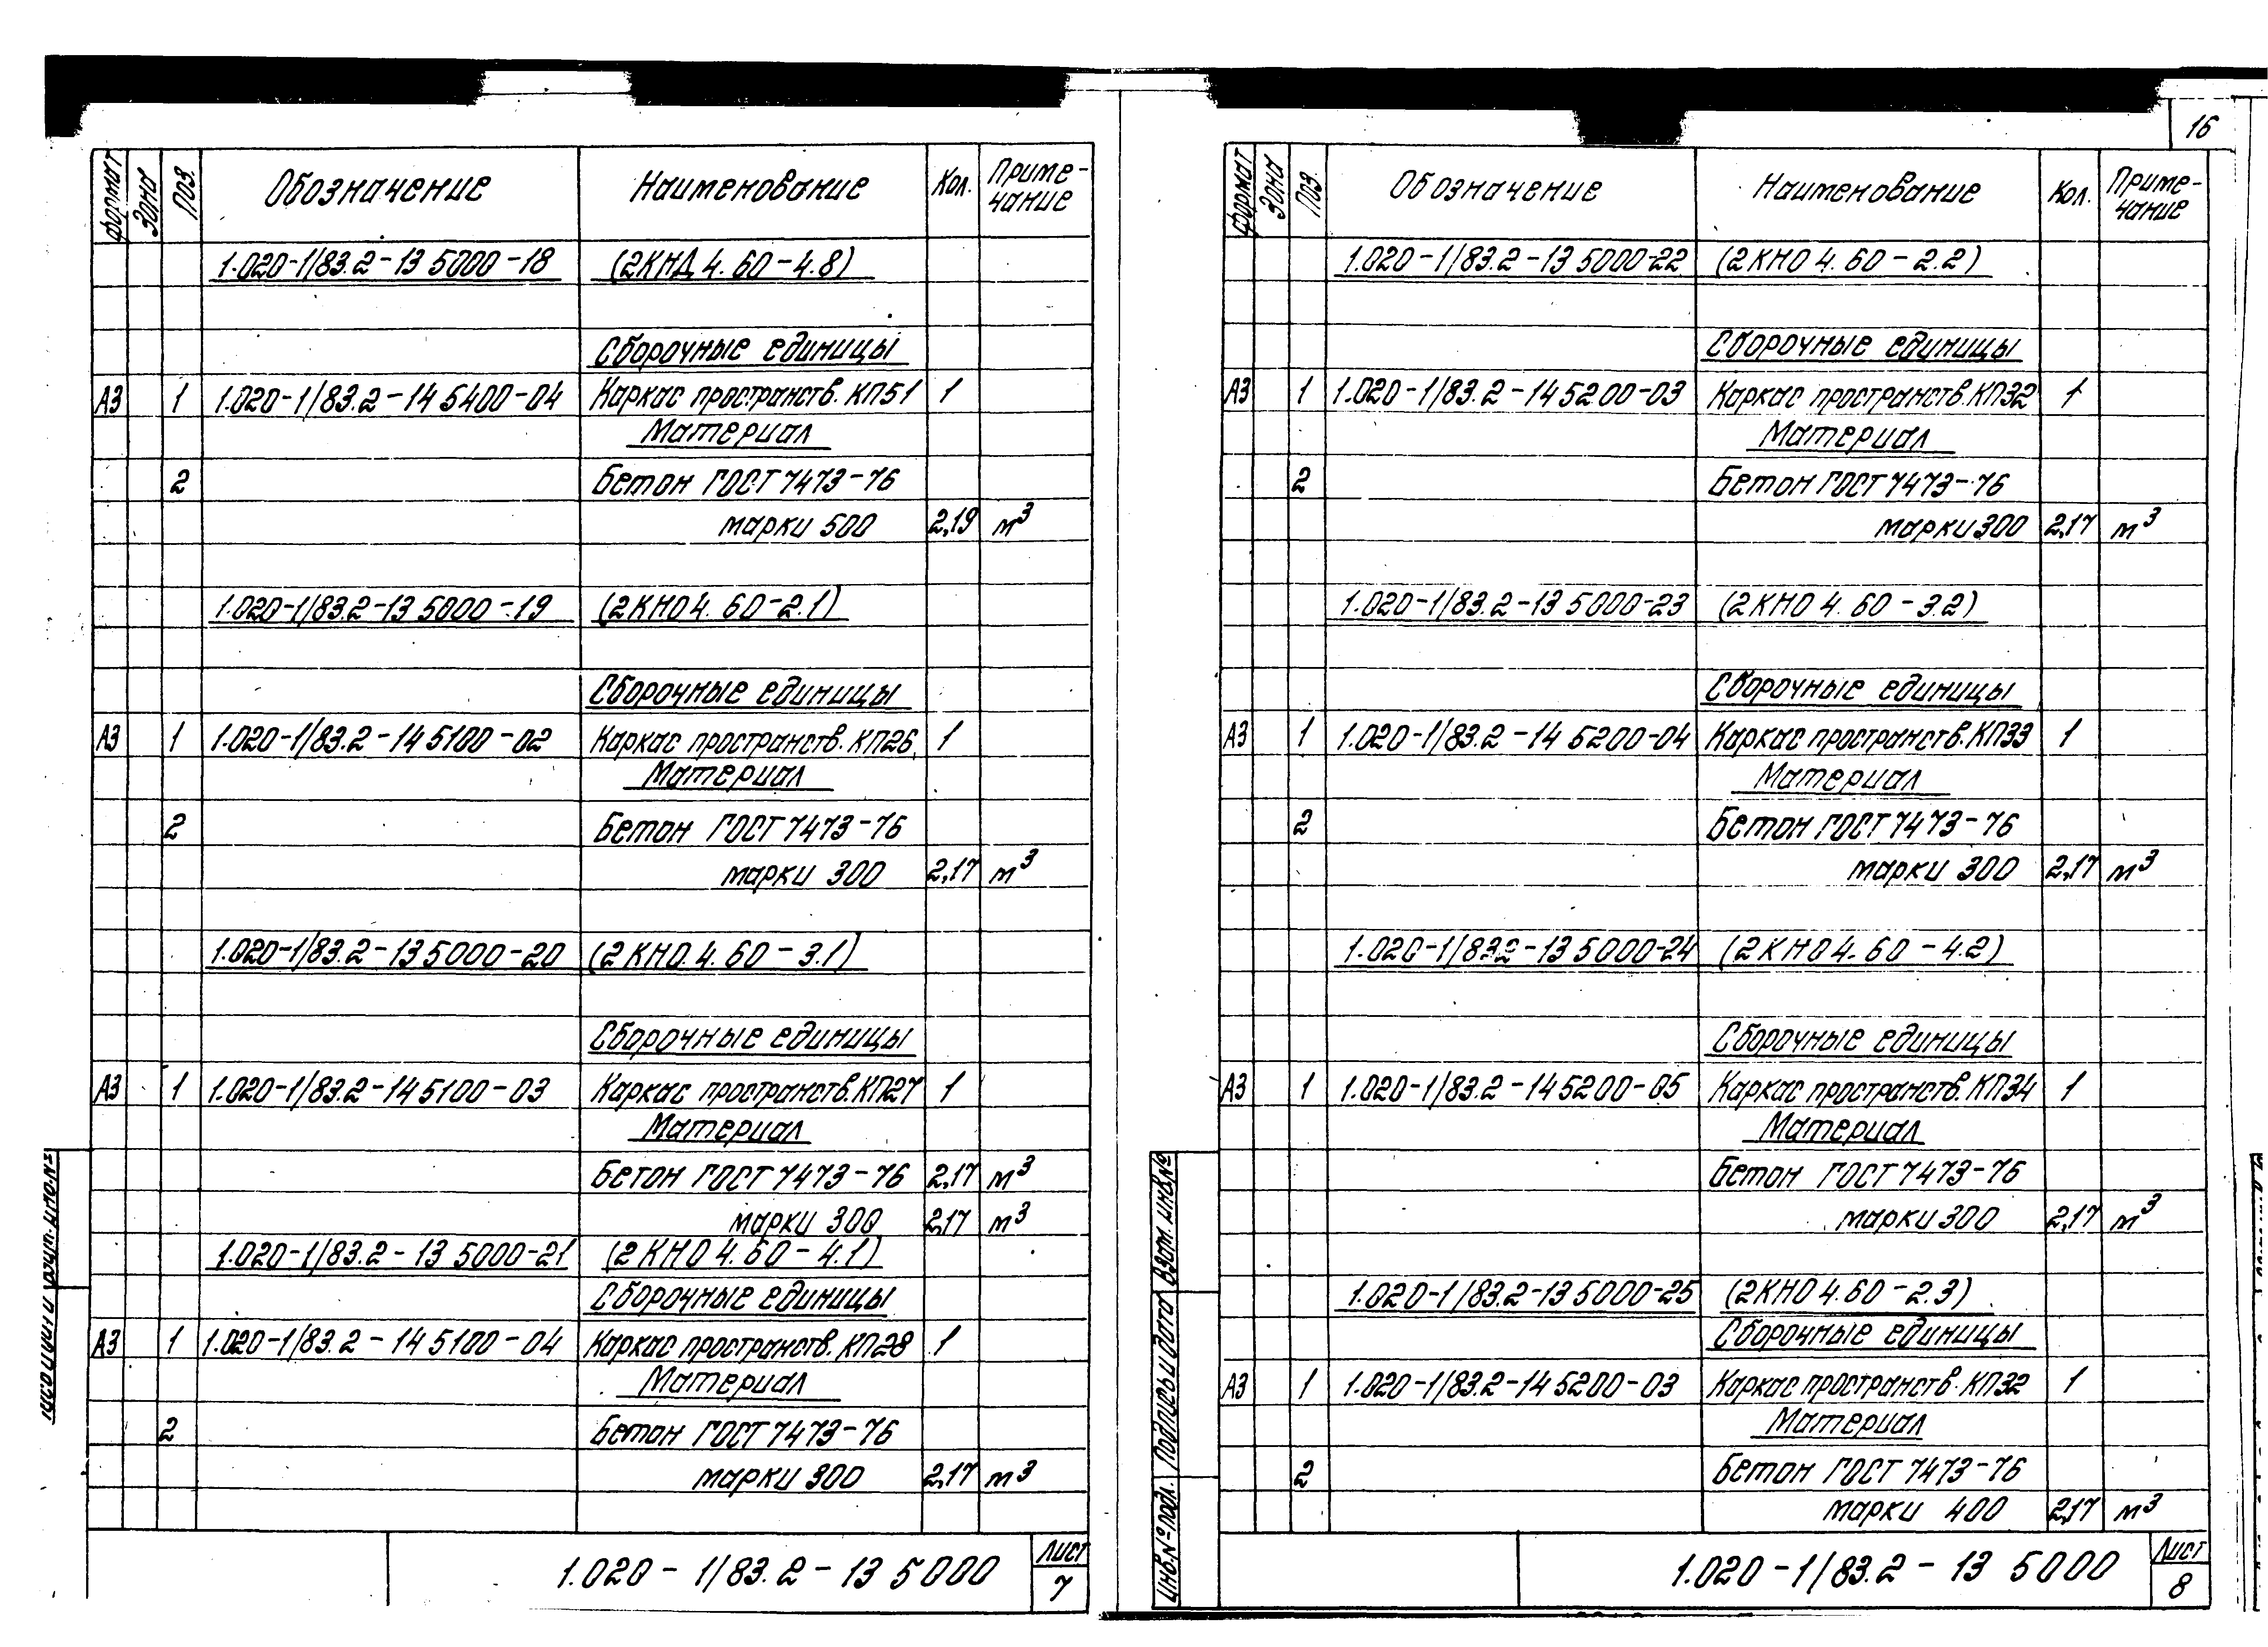 формат Зона Поз. Обозначение Наименование Кол. Приме-чание
1.020-1/83.2-13 5000-18 (2КНД 4.60-4.8)
Сборочные единицы
А3 1 1.020-1/83.2-14 5400-04 Каркас пространств. КП51 1
Материал
2 Бетон ГОСТ 7473-76
марки 500 2,19 м³
1.020-1/83.2-13 5000-19 (2КНО 4.60-2.1)
Сборочные единицы
А3 1 1.020-1/83.2-14 5100-02 Каркас пространств. КП26 1
Материал
2 Бетон ГОСТ 7473-76
марки 300 2,17 м³
1.020-1/83.2-13 5000-20 (2КНО 4.60-3.1)
Сборочные единицы
А3 1 1.020-1/83.2-14 5100-03 Каркас пространств. КП27 1
Материал
Бетон ГОСТ 7473-76 2,17 м³
марки 300 2,17 м³
1.020-1/83.2-13 5000-21 (2КНО 4.60-4.1)
Сборочные единицы
А3 1 1.020-1/83.2-14 5100-04 Каркас пространств. КП28 1
Материал
2 Бетон ГОСТ 7473-76
марки 300 2,17 м³
1.020-1/83.2-13 5000
Лист
7
16
формат Зона Поз. Обозначение Наименование Кол. Приме-чание
1.020-1/83.2-13 5000-22 (2КНО 4.60-2.2)
Сборочные единицы
А3 1 1.020-1/83.2-14 5200-03 Каркас пространств. КП32 1
Материал
2 Бетон ГОСТ 7473-76
марки 300 2,17 м³
1.020-1/83.2-13 5000-23 (2КНО 4.60-3.2)
Сборочные единицы
А3 1 1.020-1/83.2-14 5200-04 Каркас пространств. КП33 1
Материал
2 Бетон ГОСТ 7473-76
марки 300 2,17 м³
1.020-1/83.2-13 5000-24 (2КНО 4.60-4.2)
Сборочные единицы
А3 1 1.020-1/83.2-14 5200-05 Каркас пространств. КП34 1
Материал
Бетон ГОСТ 7473-76
марки 300 2,17 м³
1.020-1/83.2-13 5000-25 (2КНО 4.60-2.3)
Сборочные единицы
А3 1 1.020-1/83.2-14 5200-03 Каркас пространств. КП32 1
Материал
2 Бетон ГОСТ 7473-76
марки 400 2,17 м³
Инв.№ подл. Подпись и дата Взам. инв.№
1.020-1/83.2-13 5000
Лист
8